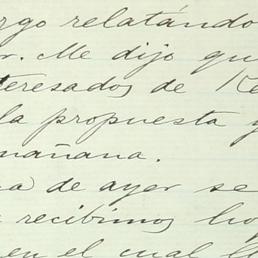 rgo relatándo
r. Me dijo qu
teresados de Re
la propuesta y
mañana.
a de ayer se
recibimos ho
en el cual l